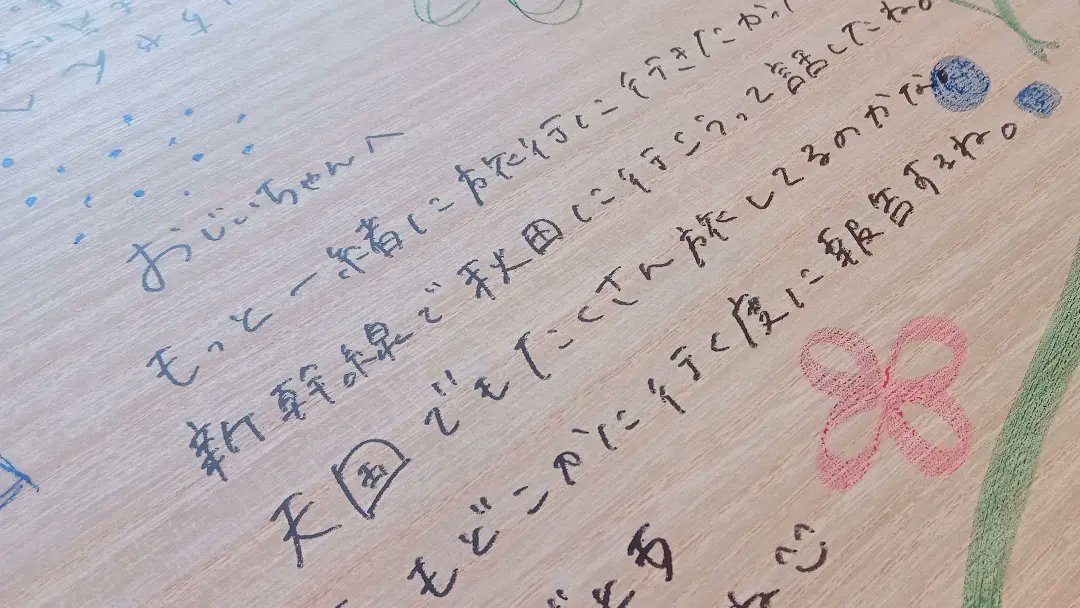 おじいちゃんへ
もっと一緒に旅行に行きたかっ
新幹線で秋田に行こうって話したね。
天国でもたくさん旅してるのかな
もどこかに行く度に報告するね。